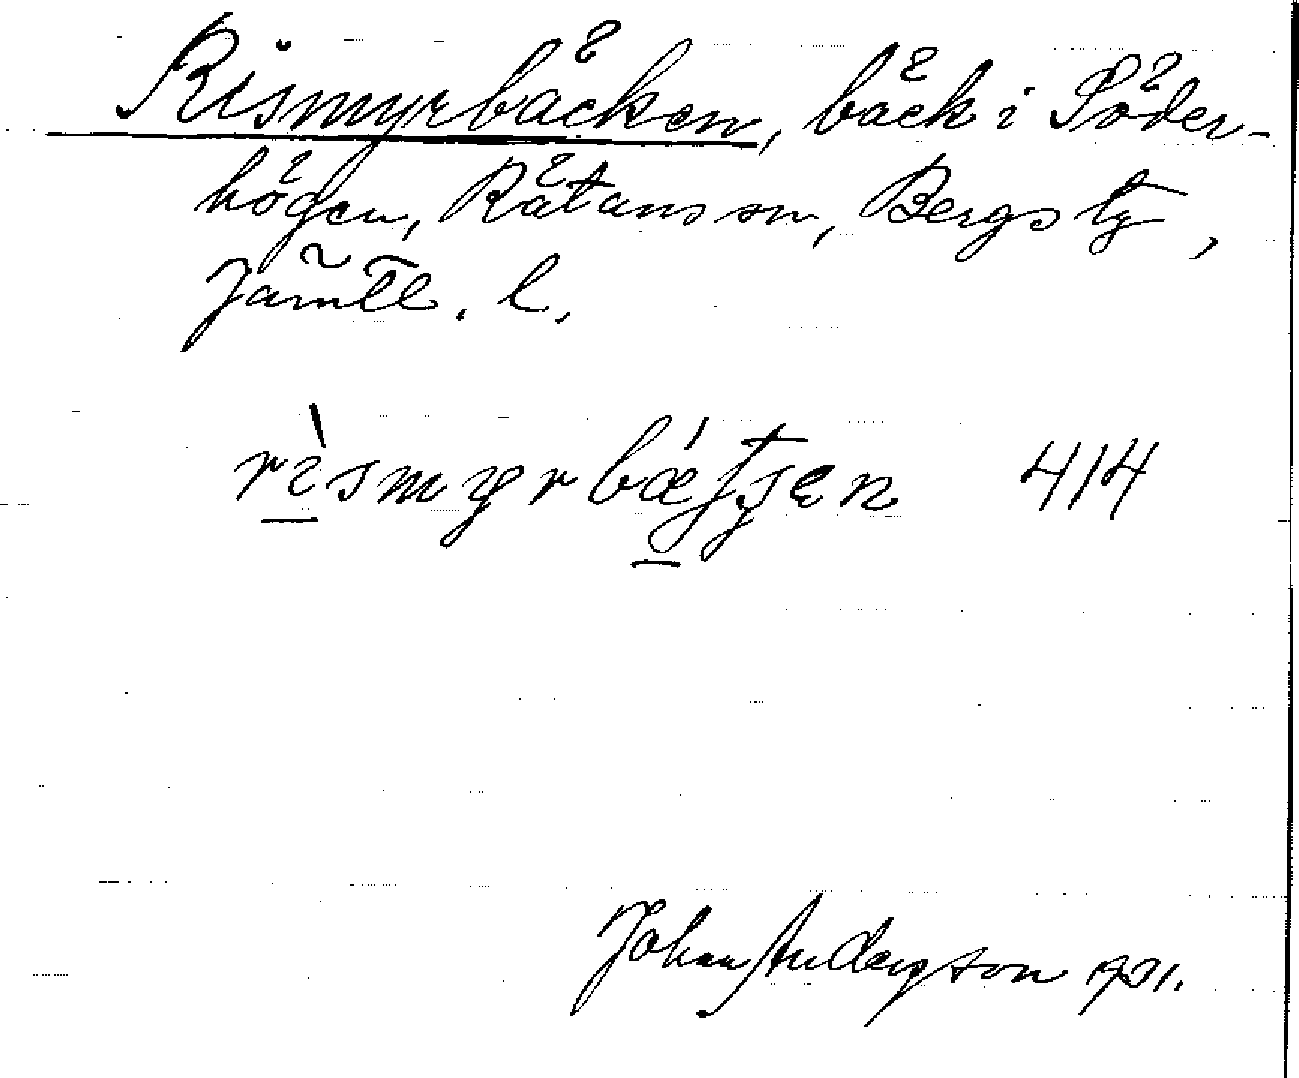 Rismyrbäcken, bäck i Söder-
högen, Rätans sn, Bergs tg,
Jämtl. l.
rìsmyrbǽʃʃɛn 414
Johan Anderson 1931.